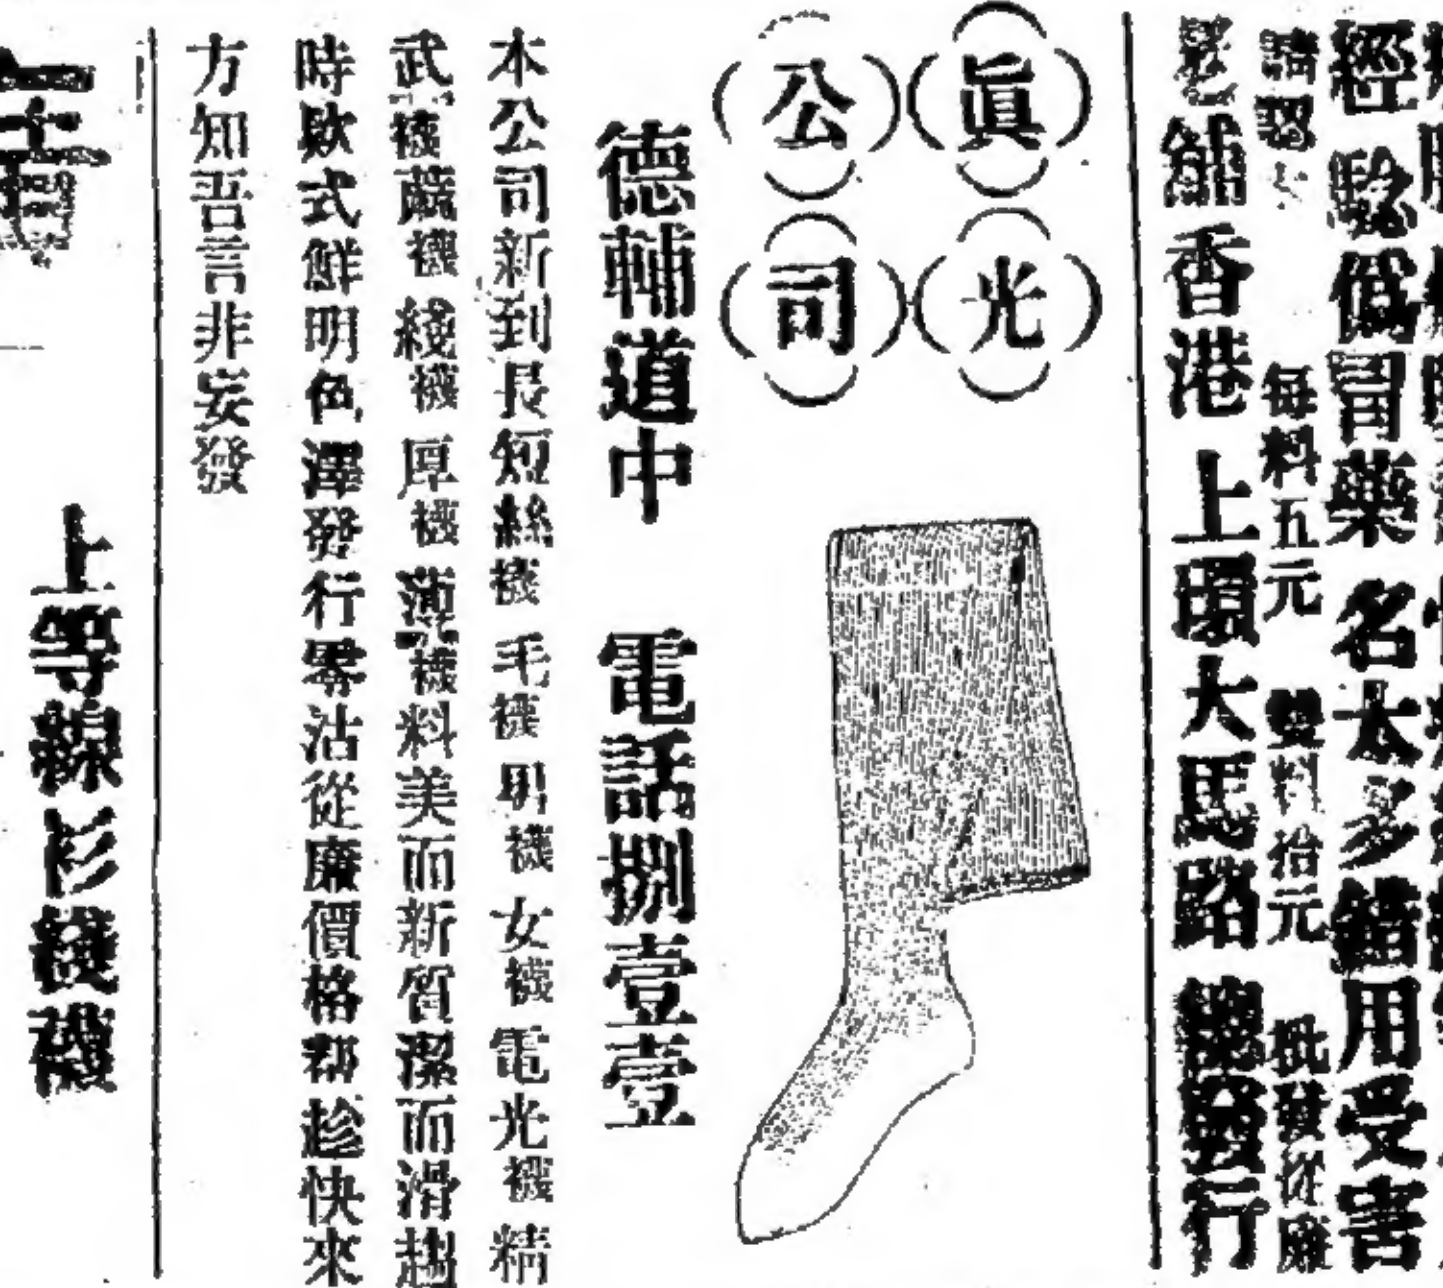 經驗 僞冒藥 名太多 錯用受害
每料五元 雙料拾元 批發從廉
舖香港 上環大馬路 總發行
眞光
公司
德輔道中 電話捌壹壹
本公司新到長短絲襪 毛襪 男襪 女襪 電光襪 精
武襪 蔴襪 綫襪 厚襪 薄襪 料美而新質潔而滑趨
時欵式鮮明色澤發行零沽從廉價格都趁快來
方知吾言非妄發
上等線衫綫襪